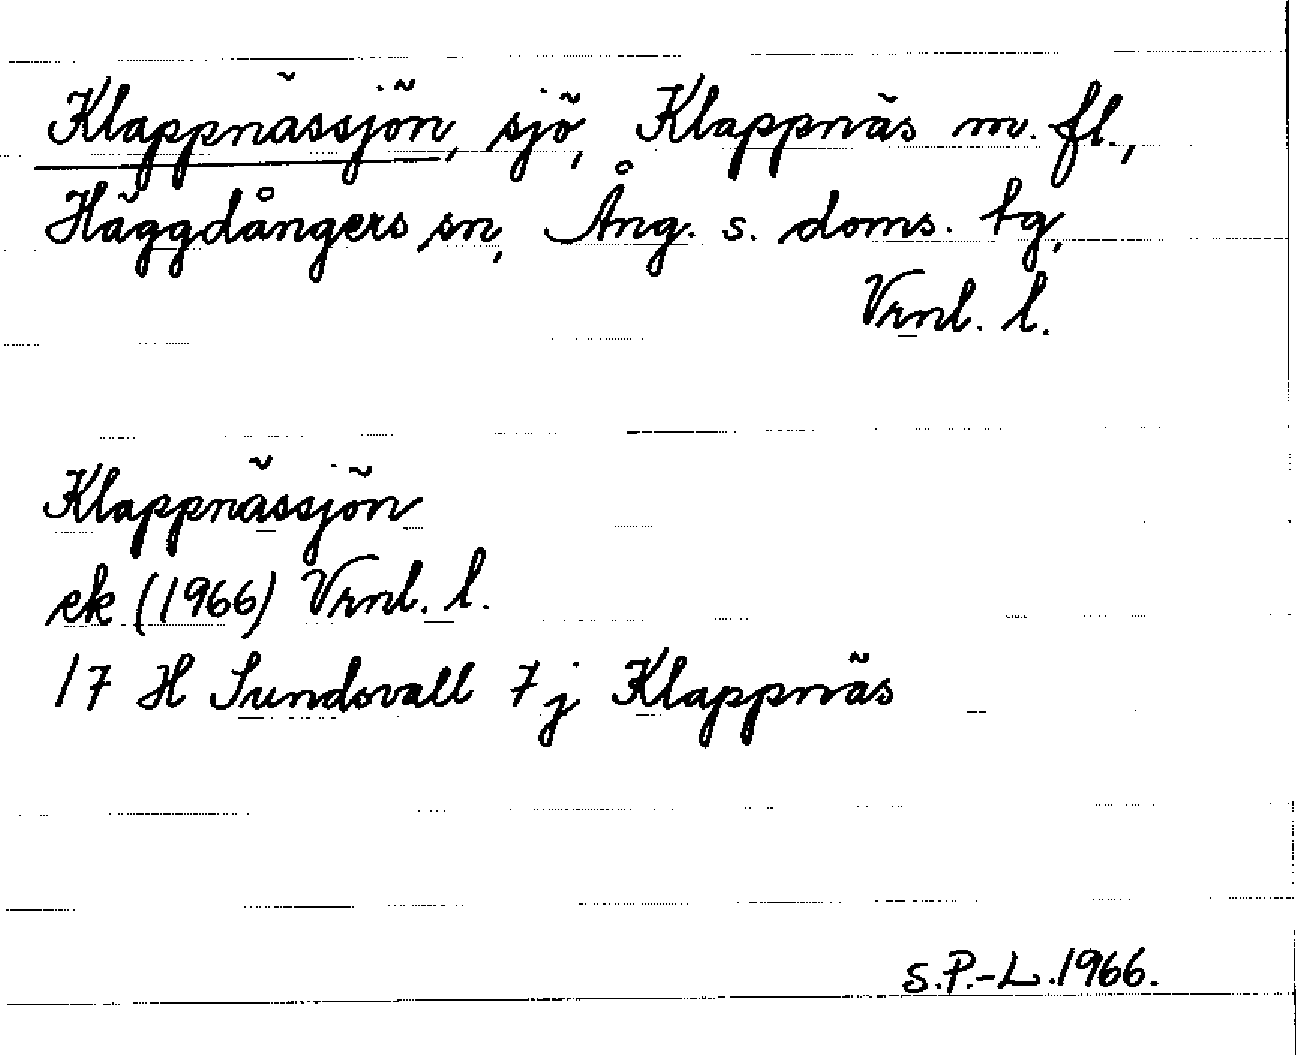 Klappnässjön, sjö, Klappnäs m. fl.,
Häggdångers sn, Ång. s. doms. tg,
Vrnl. l.
Klappnässjön
ek (1966) Vrnl. l.
17 H Sundsvall 7 j Klappnäs
S.P.-L. 1966.